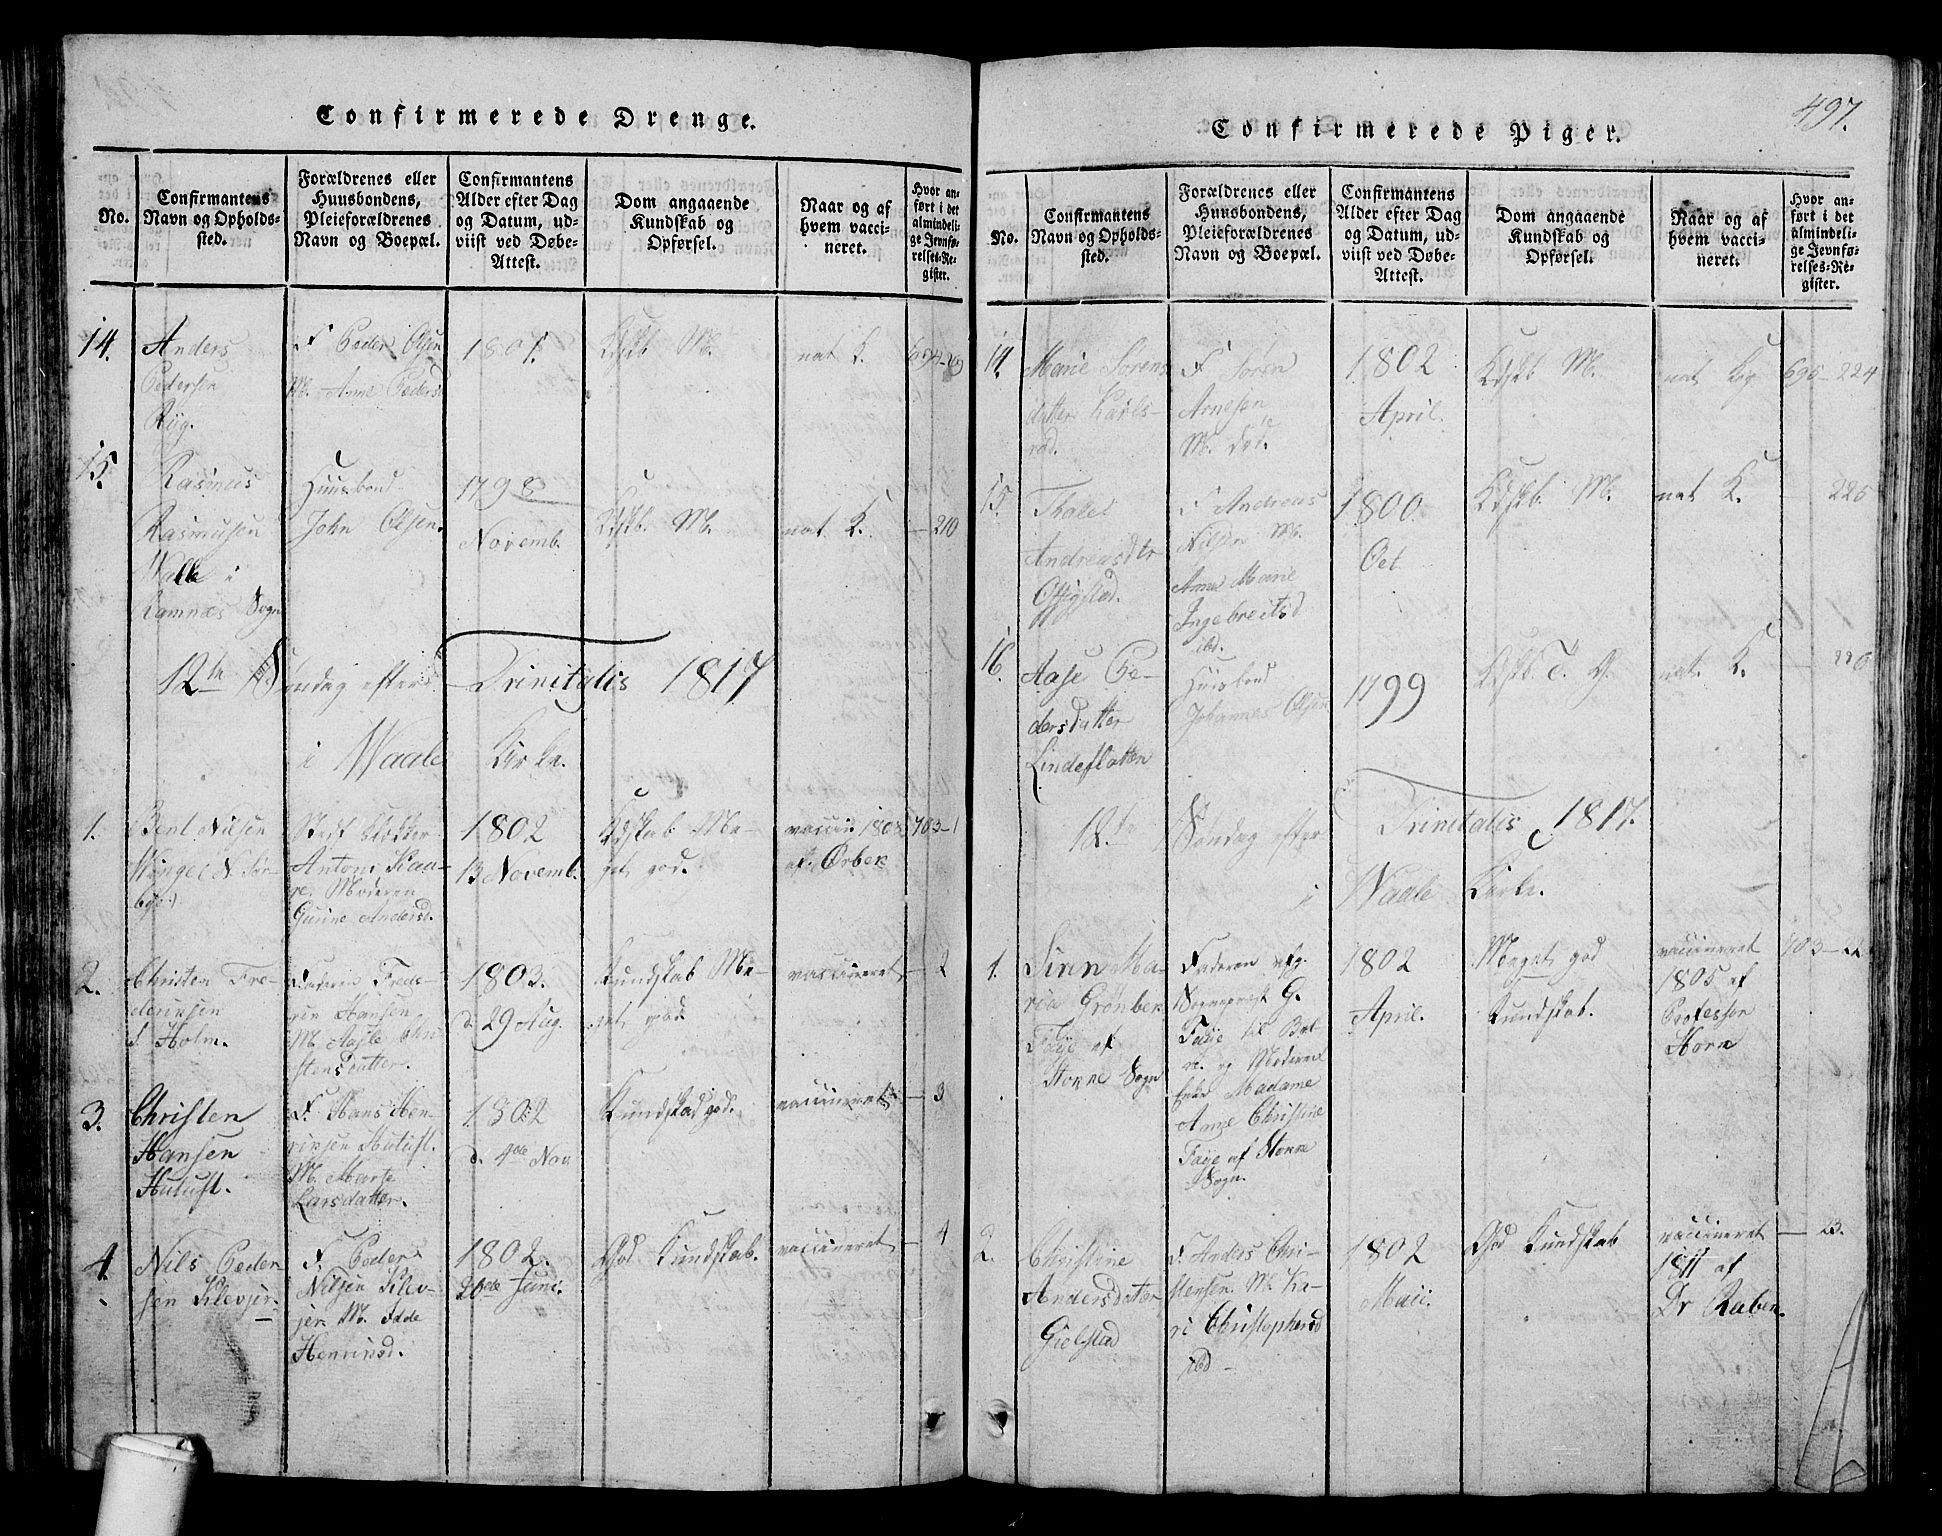 Confirmerede Drenge.
No.
Confirmantens
Navn og Opholds-
sted.
Forældrenes eller
Huusbondens,
Pleieforældrenes
Navn og Boepæl.
Confirmantens
Alder efter Dag
og Datum, ud-
viist ved Døbe-
Attest.
Dom angaaende
Kundskab og
Opførsel.
Naar og af
hvem vacci-
neret.
Hvor an-
ført i det
almindeli-
ge Jevnfø-
relses-Re-
gister.
14.
Anders
Pedersen
Ryg.
F Peder Olsen
M. Anne Peders
1801.
Kdskb M.
nat K.
15.
Rasmus
Rasmusen
Walle i
Ramnæs Sogn
Huusbond
John Olsen.
1798
Novemb.
Kdskb. M.
nat K.
— 210
12te Søndag efter Trinitatis 1817
i Waale Kirke.
1.
Bent Nilsen
Stedf Klokker
Antoni
Moderen
Gurine Andersd.
1802
13 Novemb.
Kdskab Me-
get god.
vaccin: 1802
af Ørbek
703-1
2.
Christen Fre-
derinsen
Holm.
Faderen Frede-
rin Hansen
M. Aasle Chri-
stensdatter.
1803.
d. 29 Aug.
Kundskab Me-
get god
vaccineret
— 2
3.
Christen
Hansen
Hutuft.
F. Hans Hen-
rinsen Hutuft.
M. Marte
Larsdatter.
1802
d. 4de Nov
Kundskab god.
vaccineret
— 3
4.
Nils Peder-
sen Klevjer
F. Peder
Nilsen Klev-
jer M. Edde
Henrinsd.
1802.
20de Juni
God Kundskab.
vaccineret
— 4
Confirmerede Piger.
497.
No.
Confirmantens
Navn og Opholds-
sted.
Forældrenes eller
Huusbondens,
Pleieforældrenes
Navn og Boepæl.
Confirmantens
Alder efter Dag
og Datum, ud-
viist ved Døbe-
Attest.
Dom angaaende
Kundskab og
Opførsel.
Naar og af
hvem vacci-
neret.
Hvor an-
ført i det
almindeli-
ge Jevnfø-
relses-Re-
gister.
14.
Marie Sørens
datter Karls-
rød.
F Søren
Arnesen
M. død.
1802
April.
Kdskb M.
nat K
695-224
15.
Andreasdtr
F Andreas
Nilsen M.
Anne Marie
Ingebreitsd
ibd.
1800.
Oct
Kdskb. M.
nat K.
— 225
16.
Aase Pe-
dersdatter
Lindeflatten
Huusbond
Johannes Olsen
1799
nat. K.
Søndag efter Trinitatis 1817.
i Waale Kirke.
1.
Siren Ma-
ria Grønbek
Faye af
Storne Sogn
Faderen afg.
Sognepræst G.
Faye til
og Moderen
Enke Madame
Anne Christine
Faye af Storne
Sogn.
1802
April.
Meget god
Kundskab.
vaccineret
1805 af
Professor
Horn
2.
Christine
Andersdatter
Gielstad
F. Anders Chri-
stensen. M. Ka-
ri Christophersd
ibd —
1802
Maii.
God Kundskab
vaccineret
1811 af
Dr Raben.